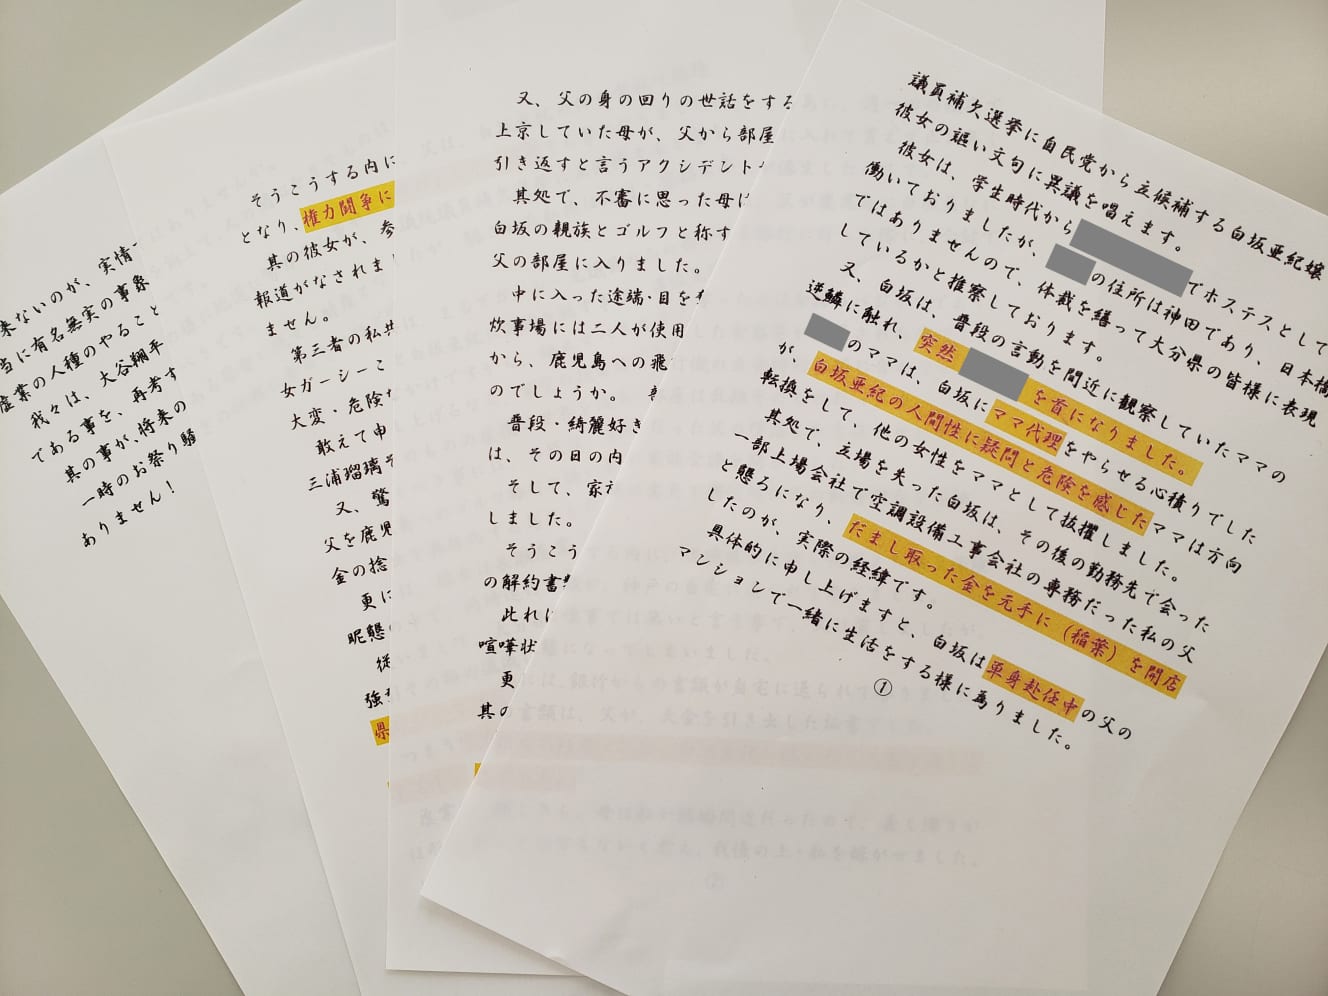 議員補欠選挙に自民党から立候補する白坂亜紀嬢
彼女の謳い文句に異議を唱えます。
彼女は、学生時代から でホステスとして
働いておりましたが、 の住所は神田であり、日本橋
ではありませんので、体裁を繕って大分県の皆様に表現
しているかと推察しております。
又、白坂は、普段の言動を間近に観察していたママの
逆鱗に触れ、突然 を首になりました。
のママは、白坂にママ代理をやらせる心積りでした
が、白坂亜紀の人間性に疑問と危険を感じたママは方向
転換をして、他の女性をママとして抜擢しました。
其処で、立場を失った白坂は、その後の勤務先で会った
一部上場会社で空調設備工事会社の専務だった私の父
と懇ろになり、だまし取った金を元手に（稲葉）を開店
したのが、実際の経緯です。
具体的に申し上げますと、白坂は単身赴任中の父の
マンションで一緒に生活をする様に為りました。
①
又、父の身の回りの世話をする
上京していた母が、父から部屋
引き返すと言うアクシデント
其処で、不審に思った母に
白坂の親族とゴルフと称す
父の部屋に入りました。
中に入った途端・目を
炊事場には二人が使用
から、鹿児島への飛
のでしょうか。
普段・綺麗好き
は、その日の内
そして、家
しました。
そうこう
の解約書
此れに
喧嘩状
更
其の
そうこうする内に
となり、権力闘争に
其の彼女が、参
報道がなされま
ません。
第三者の私共
女ガーシーこ
大変・危険な
敢えて申
三浦瑠璃そ
又、驚
父を鹿児
金の捻
更に
昵懇
従
強
県
来ないのが、実情
当に有名無実の事象
虚業の人種のやること
我々は、大谷翔平
である事を、再考す
其の事が、将来の
一時のお祭り騒
ありません！